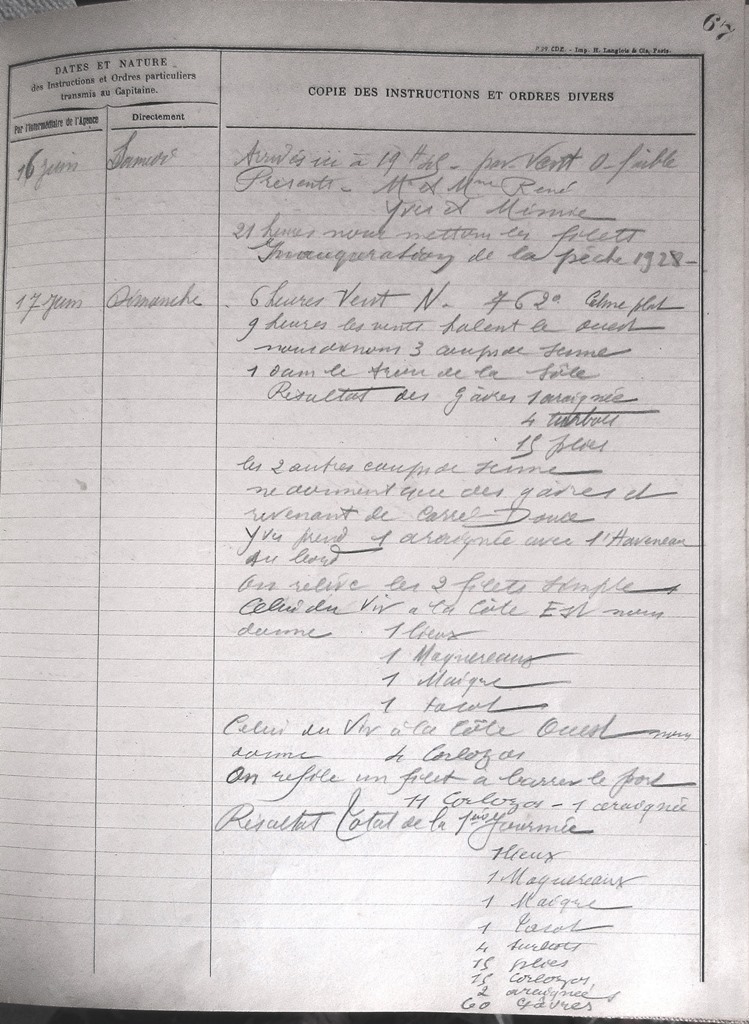 67
P.29 CDE. - Imp. H. Langlois & Cie, Paris.
DATES ET NATURE
des Instructions et Ordres particuliers
transmis au Capitaine.
Par l'Intermédiaire de l'Agence
Directement
COPIE DES INSTRUCTIONS ET ORDRES DIVERS
16 juin Samedi Arrivés ici à 19 H 45 - par Vent O - faible
Présents - Mr et Mme René
Yves et Mimie
21 heures nous mettons les filets
Inauguration de la pêche 1928 -
17 juin Dimanche 6 heures Vent N. 762 Calme plat
9 heures les vents halent le ouest
nous donnons 3 coups de senne
1 dans le de la Sôle
Résultat des gâvres 1 araignée
4 turbots
15 plies
les 2 autres coups de senne
ne donnent que des gâvres et
revenant de Carrel Douce
Yves prend 1 araignée avec l'Haveneau
au bord
On relève les 2 filets simples
Celui du Viv à la Côte Est nous
donne 1 lieux
1 Maquereaux
1 Maigre
1 tacot
Celui du Viv à la Côte Ouest nous
donne 4 Corlozos
On refile un filet a barrer le port
11 Corlozos - 1 araignée
Résultat Total de la 1ère journée
1 lieux
1 Maquereaux
1 Maigre
1 tacot
4 turbots
15 plies
15 Corlozos
2 araignées
60 Gâvres